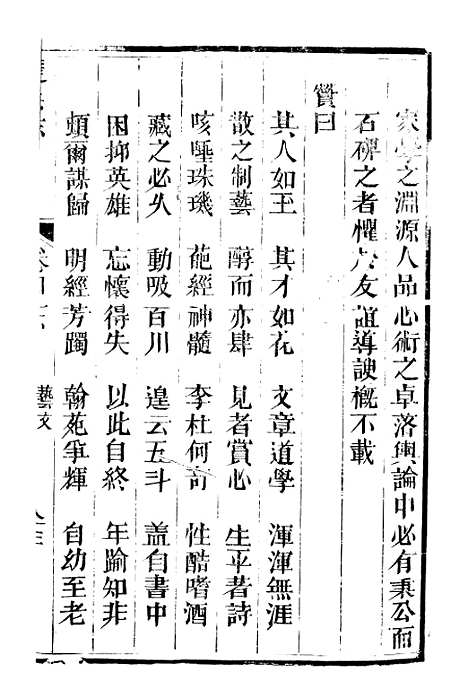 家學之淵源人品心術之卓落輿論中必有秉公而
石碑之者懼人友誼導諛概不載
贊曰
其人如玉　其才如花　文章道學　渾渾無涯
散之制藝　醇而亦肆　見者賞心　生平著詩
咳唾珠璣　葩經神髓　李杜何奇　性酷嗜酒
藏之必久　動吸百川　遑云五斗　盖自書中
困抑英雄　忘懷得失　以此自終　年踰知非
頓爾謀歸　明經芳躅　翰苑爭輝　自幼至老
藝文